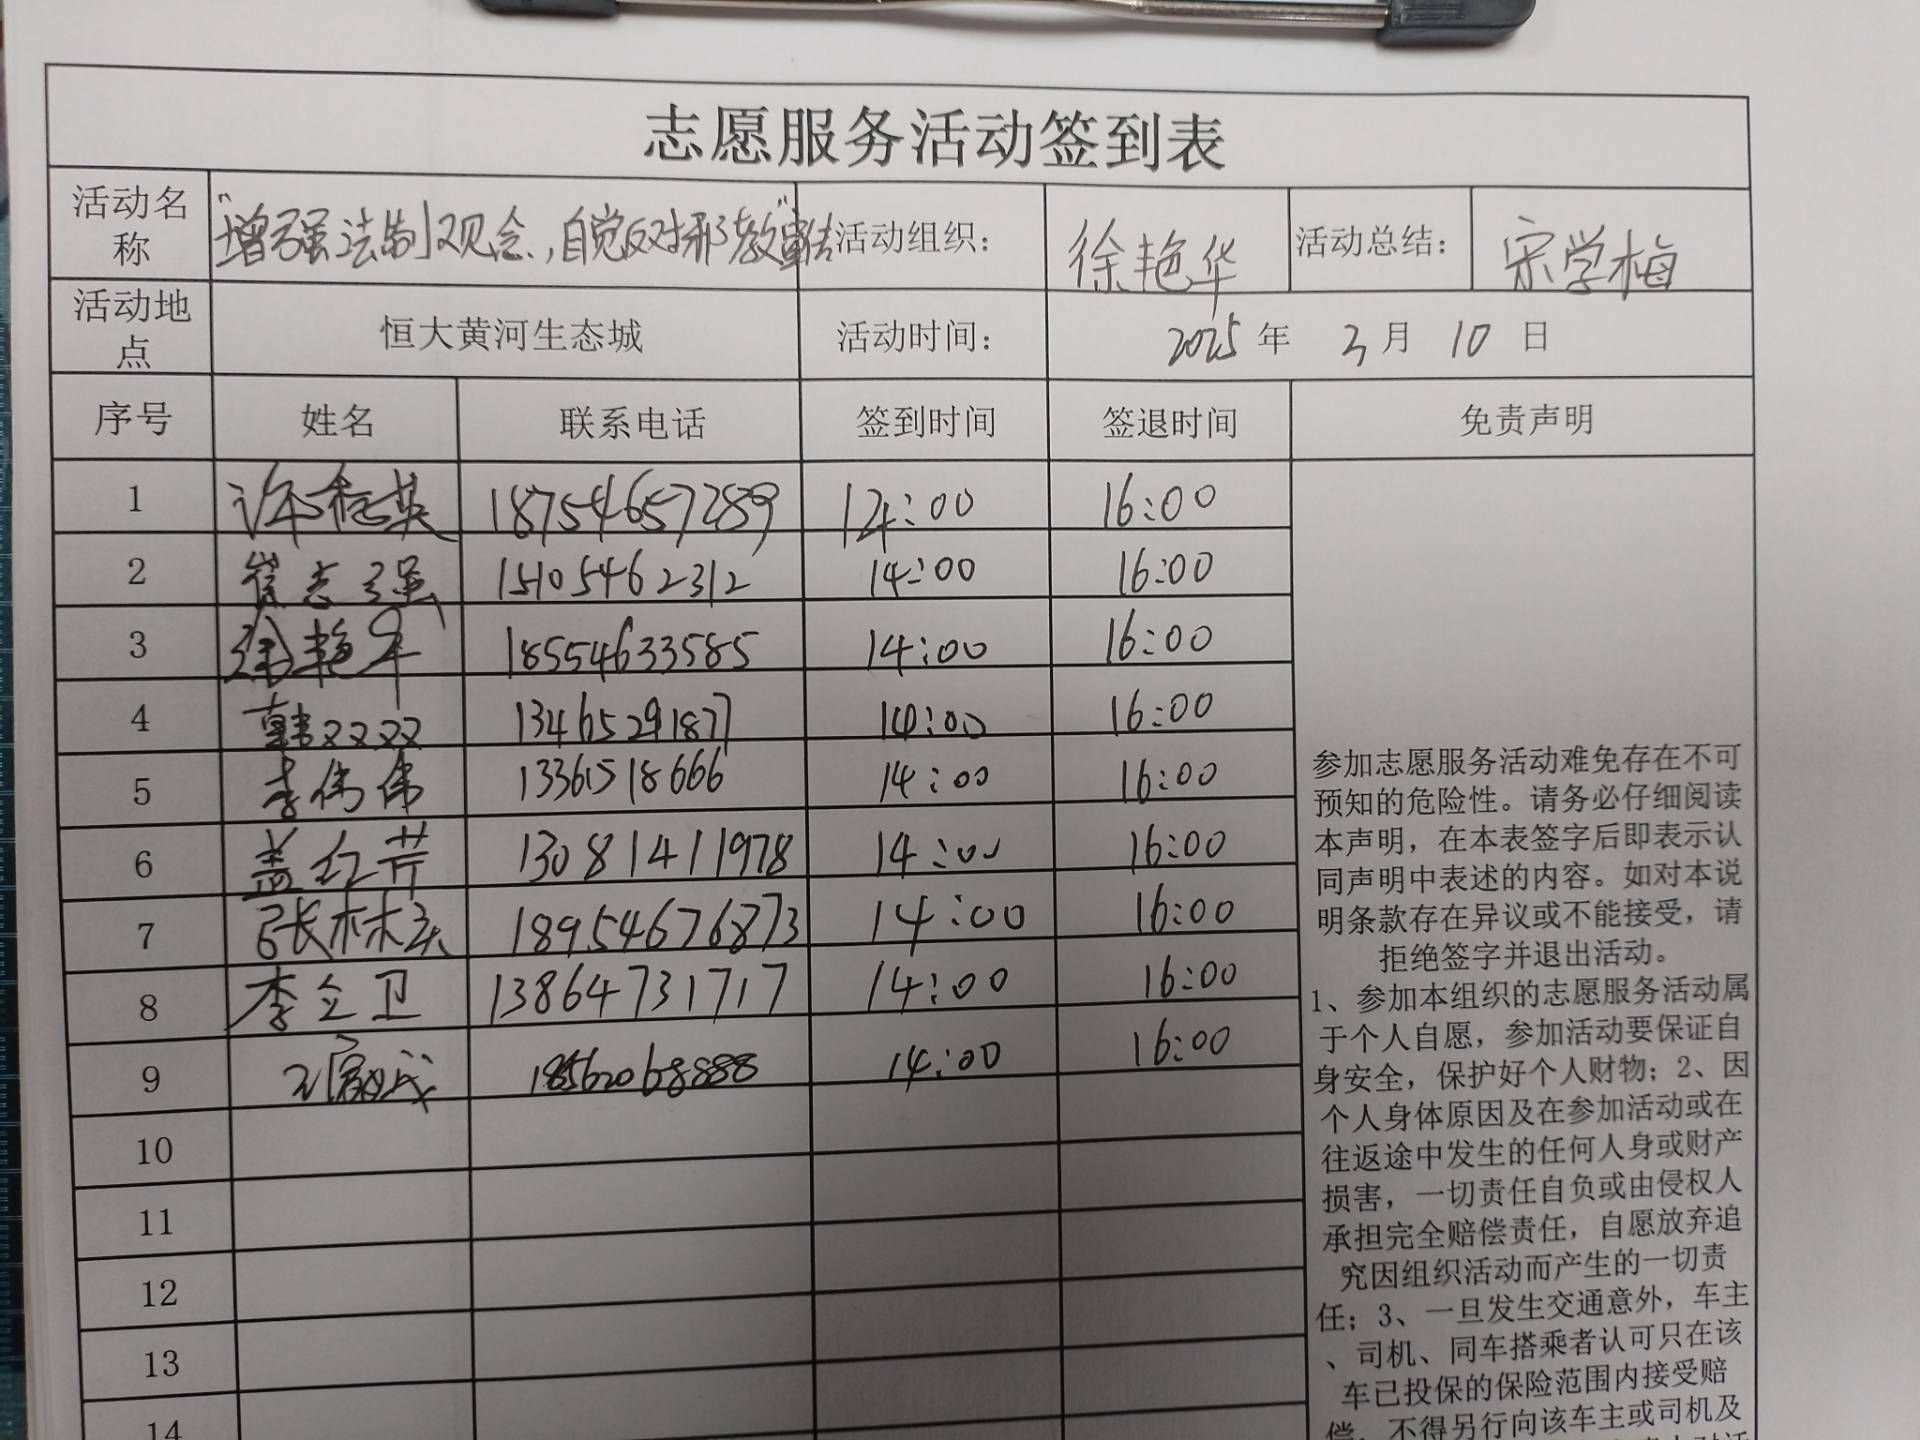 志愿服务活动签到表
活动名称 "增强法制观念,自觉反对邪教" 活动组织: 徐艳华 活动总结: 宋学梅
活动地点 恒大黄河生态城 活动时间: 2025 年 3 月 10 日
序号 姓名 联系电话 签到时间 签退时间 免责声明
1 许桂英 18754657289 14:00 16:00
2 崔志强 15105462312 14:00 16:00
3 徐艳华 18554633585 14:00 16:00
4 韩双双 13465291877 14:00 16:00
5 李伟伟 13361518666 14:00 16:00
6 盖红芹 13081411978 14:00 16:00
7 张林 18954676873 14:00 16:00
8 李立卫 13864731717 14:00 16:00
9 18562068888 14:00 16:00
10
11
12
13
14
参加志愿服务活动难免存在不可
预知的危险性。请务必仔细阅读
本声明，在本表签字后即表示认
同声明中表述的内容。如对本说
明条款存在异议或不能接受，请
拒绝签字并退出活动。
1、参加本组织的志愿服务活动属
于个人自愿，参加活动要保证自
身安全，保护好个人财物；2、因
个人身体原因及在参加活动或在
往返途中发生的任何人身或财产
损害，一切责任自负或由侵权人
承担完全赔偿责任，自愿放弃追
究因组织活动而产生的一切责
任；3、一旦发生交通意外，车主
、司机、同车搭乘者认可只在该
车已投保的保险范围内接受赔
偿，不得另行向该车主或司机及